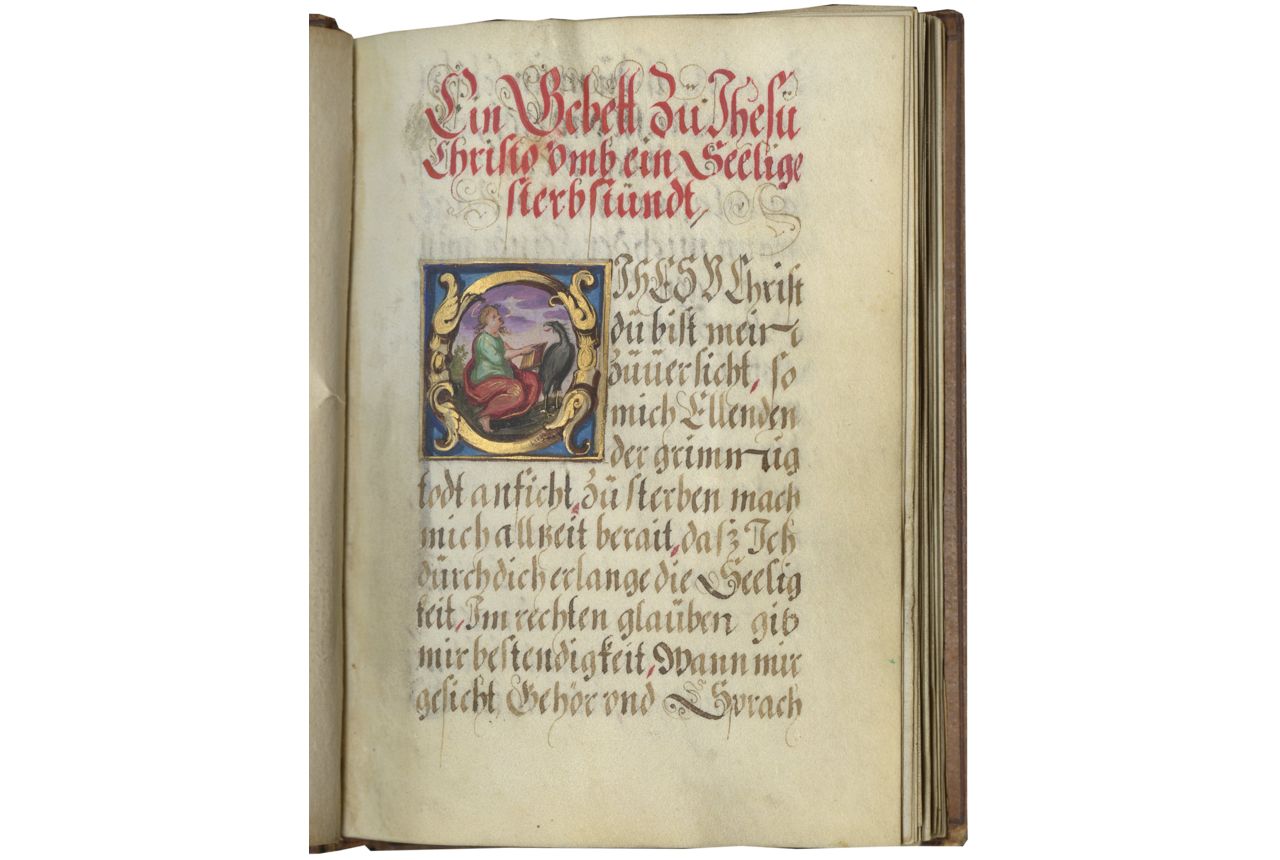 Ein Gebett Zü Jhesu
Christo vmb ein Seelige
sterbstündt,
O JHESV Christ
dü bist mein
züüersicht, so
mich Ellenden
der grimmig
todt anficht, Zü sterben mach
mich allzeit berait, dasz Ich
dürch dich erlange die Seelig
keit, Im rechten glaüben gib
mir bestendigkeit, Wann mir
gesicht Gehör vnd Sprach